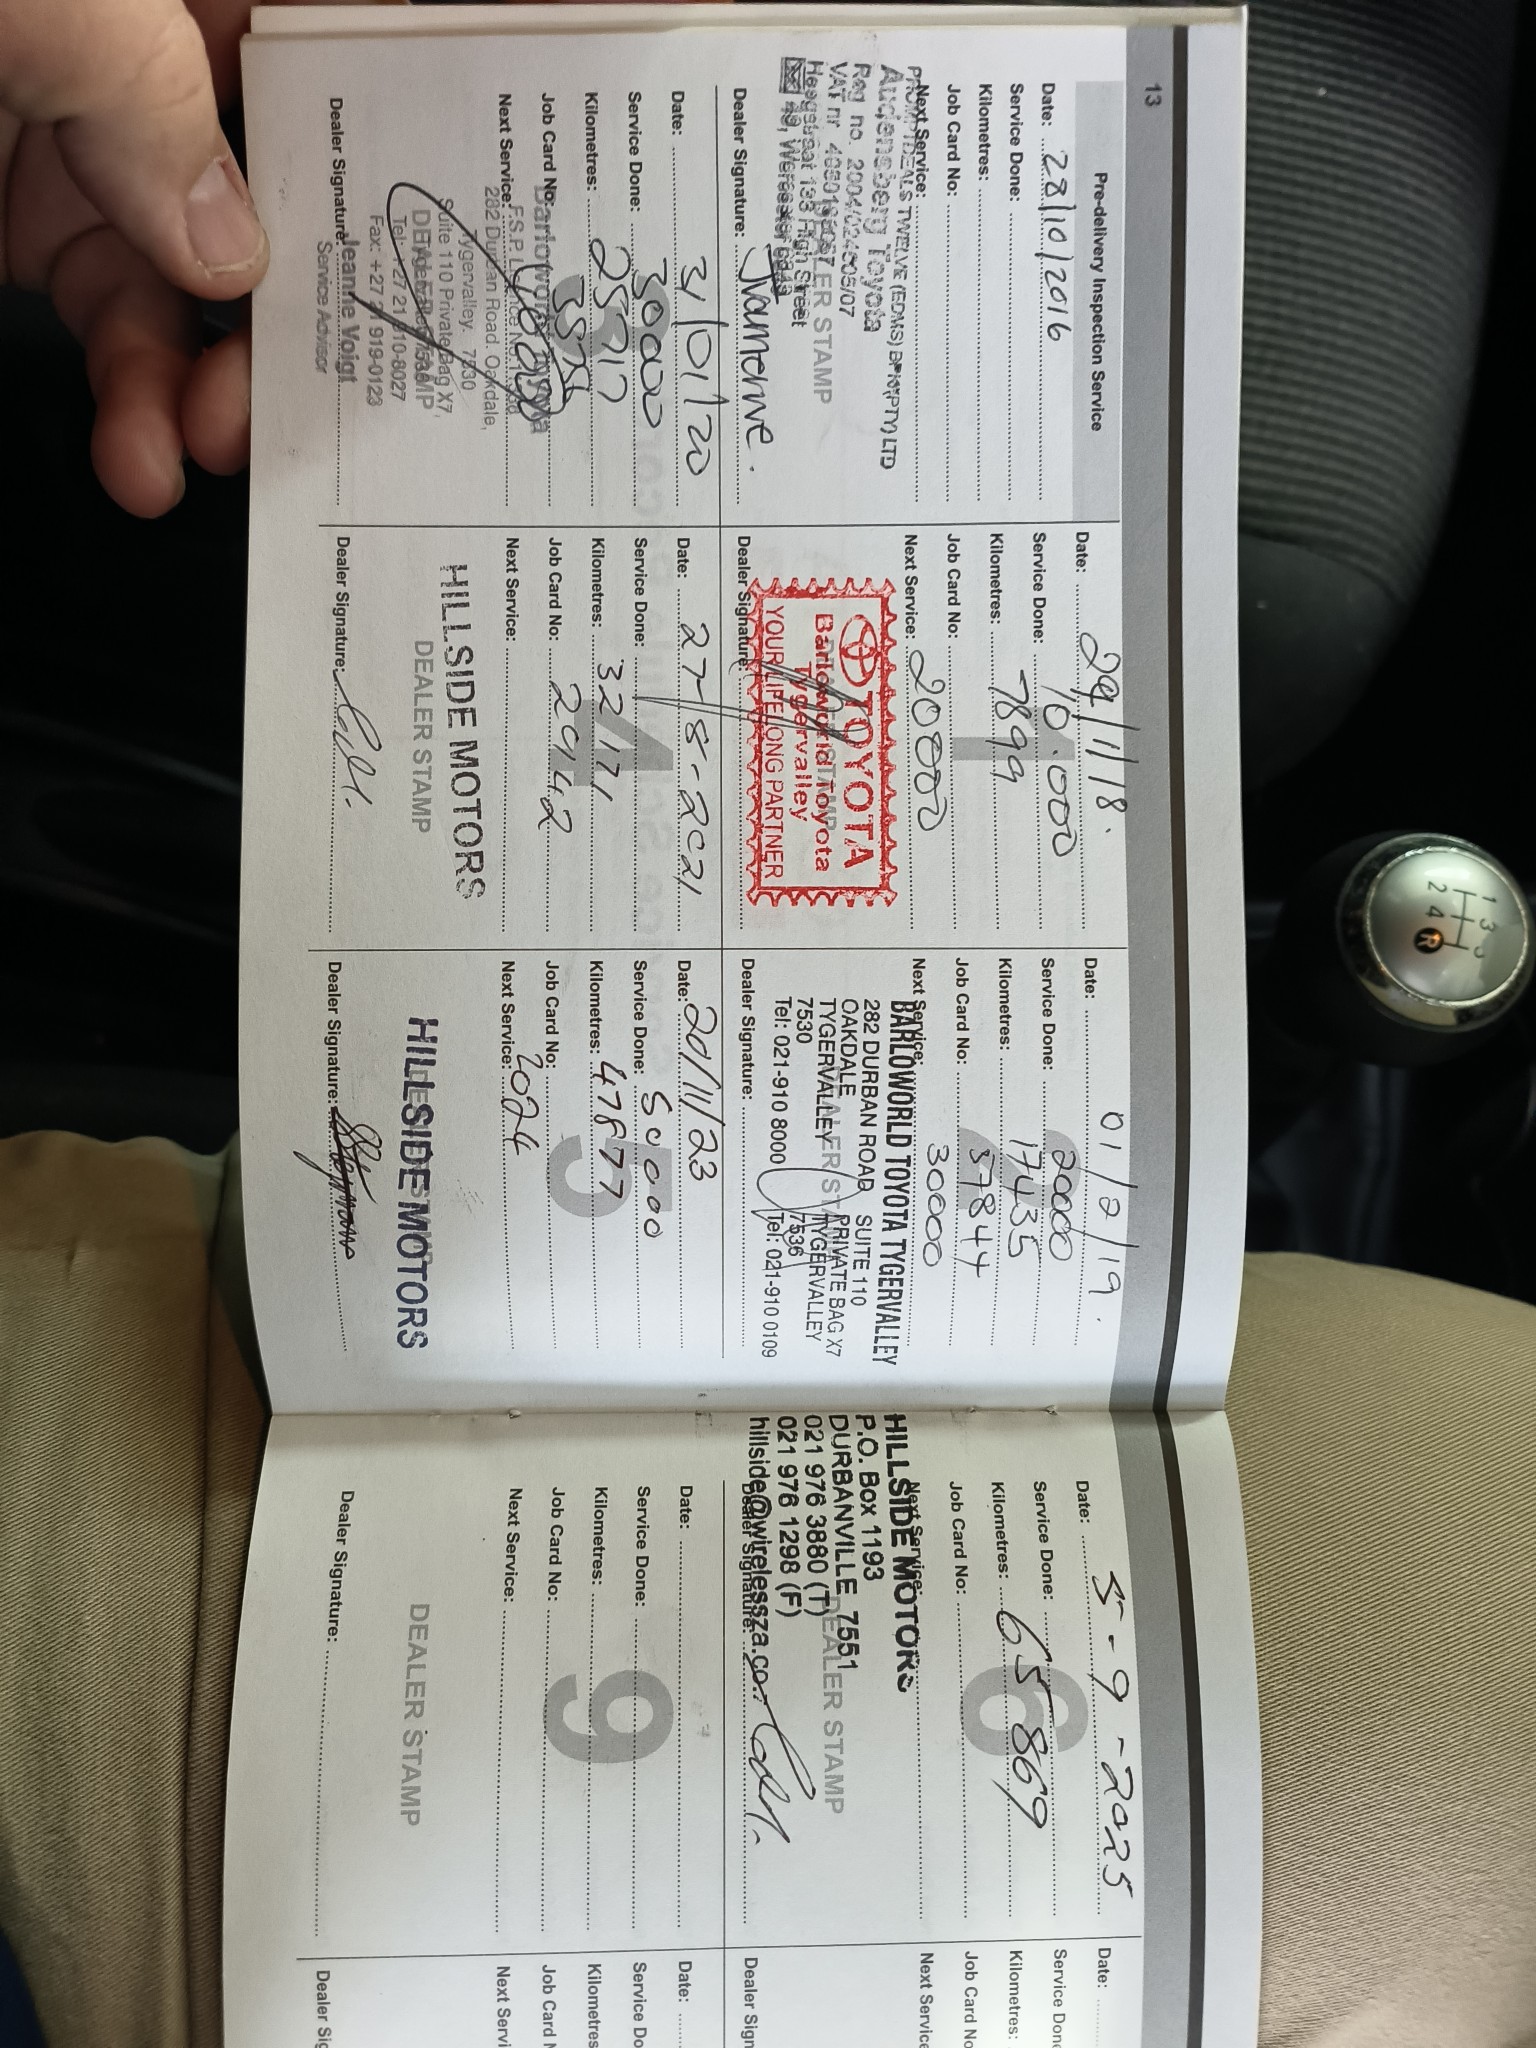 13
Pre-delivery Inspection Service
Date: 28/10/2016
Service Done:
Kilometres:
Job Card No:
Next Service:
PROMPT DEALS TWELVE (EDMS) BPK (PTY) LTD
Audensberg Toyota
Reg no. 2004/024605/07
VAT nr
Hoogstraat 133 High Street
DEALER STAMP
Dealer Signature:
1
Date: /11/18.
Service Done: 10.000
Kilometres: 7899
Job Card No:
Next Service: 20000
TOYOTA
Barloworld Toyota
Tygervalley
YOUR LIFELONG PARTNER
DEALER STAMP
Dealer Signature:
2
Date: 01/2/19.
Service Done: 20000
Kilometres: 17435
Job Card No: 37844
Next Service: 30000
BARLOWORLD TOYOTA TYGERVALLEY
282 DURBAN ROAD SUITE 110
OAKDALE PRIVATE BAG X7
TYGERVALLEY TYGERVALLEY
7530 7536
Tel: 021-910 8000 Tel: 021-910 0109
DEALER STAMP
Dealer Signature:
3
Date: 31/01/20
Service Done: 30000
Kilometres: 25917
Job Card No:
Next Service:
Barloworld Toyota
282 Durban Road, Oakdale,
Tygervalley. 7530
Suite 110 Private Bag X7,
DEALER STAMP
Tel: +27 21 910-8027
Fax: +27 21 919-0123
Jeanne Voigt
Service Advisor
Dealer Signature:
4
Date: 27-8-2021
Service Done:
Kilometres: 32171
Job Card No: 2942
Next Service:
HILLSIDE MOTORS
DEALER STAMP
Dealer Signature:
5
Date: 20/11/23
Service Done: 5000
Kilometres: 47877
Job Card No:
Next Service: 2024
HILLSIDE MOTORS
Dealer Signature:
6
Date: 5-9-2025
Service Done:
Kilometres: 65869
Job Card No:
Next Service:
HILLSIDE MOTORS
P.O. Box 1193
DURBANVILLE 7551
021 976 3880 (T)
021 976 1298 (F)
hillside@wirelessza.co.
DEALER STAMP
Dealer Signature:
9
Date:
Service Done:
Kilometres:
Job Card No:
Next Service:
DEALER STAMP
Dealer Signature:
Date:
Service Done
Kilometres:
Job Card No
Next Service
Dealer Sign
Date:
Service Do
Kilometres
Job Card N
Next Servi
Dealer Sig
1 3 5
2 4 R